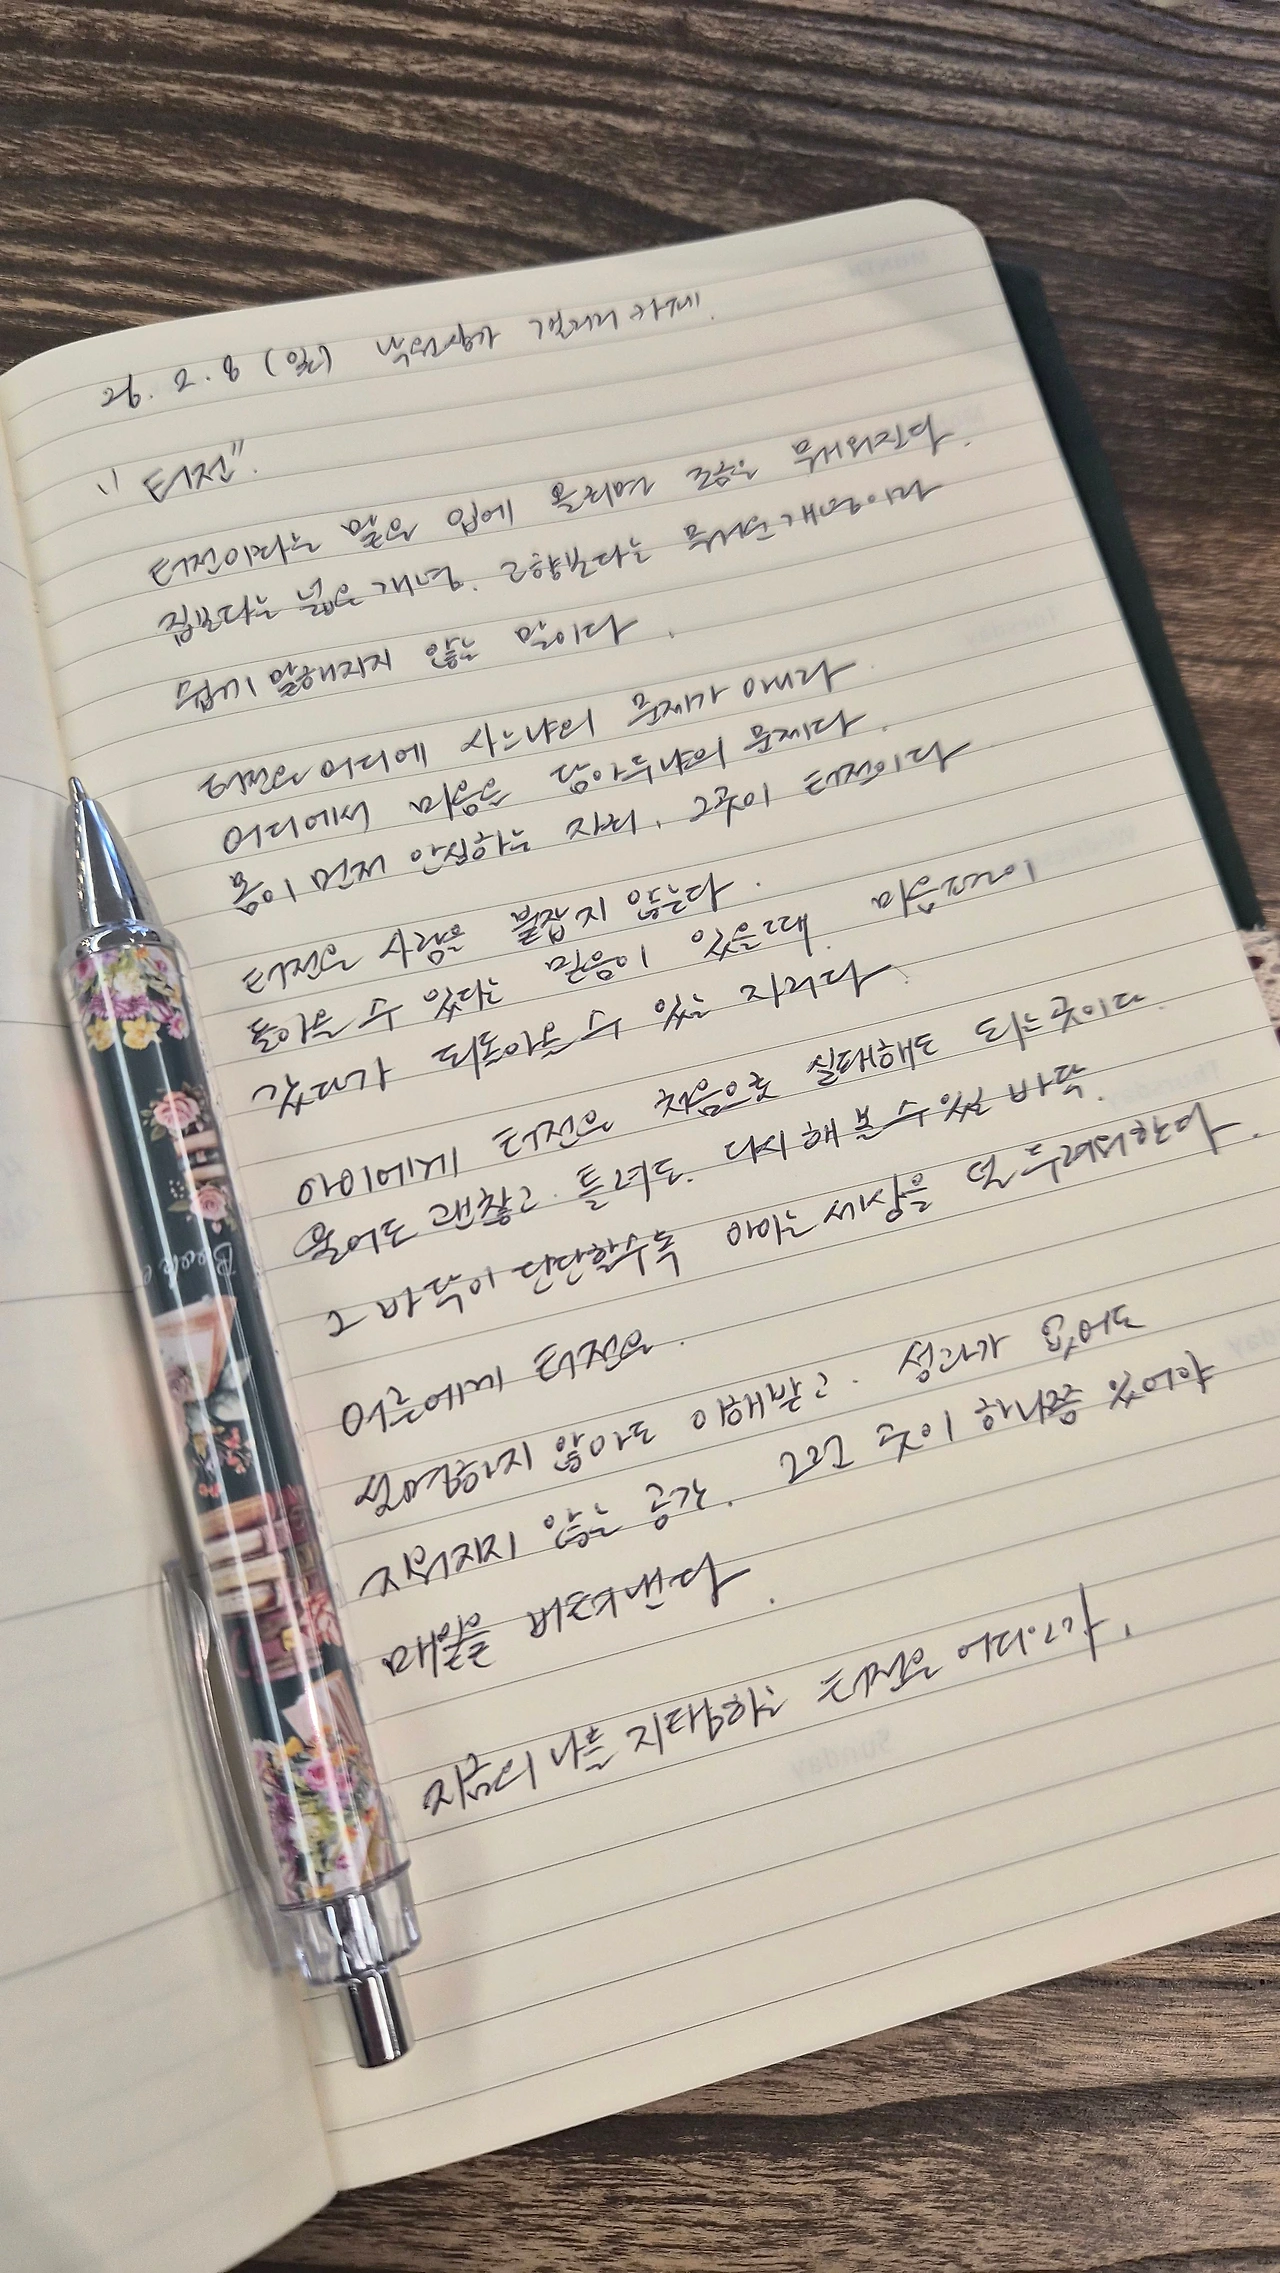 26. 2. 8 (일) 낙원상가 갤러리 카페.
"터전".
터전이라는 말은 입에 올리면 조금은 무거워진다.
집보다는 넓은 개념. 고향보다는 무서운 개념이라
쉽게 말해지지 않는 말이다.
터전은 어디에 사느냐의 문제가 아니라
어디에서 마음을 담아두냐의 문제다.
몸이 먼저 안심하는 자리. 그곳이 터전이다
터전은 사람을 붙잡지 않는다.
돌아올 수 있다는 믿음이 있을때. 마음껏
갔다가 되돌아올 수 있는 자리다.
아이에게 터전은 처음으로 실패해도 되는곳이다.
울어도 괜찮고. 틀려도. 다시 해 볼 수 있을 바닥.
그 바닥이 단단할수록 아이는 세상을 덜 두려워한다.
어른에게 터전은.
설명하지 않아도 이해받고. 성과가 없어도
지워지지 않는 공간. 그런 곳이 하나쯤 있어야
매일을 버텨낸다.
지금의 나를 지탱하는 터전은 어디인가.
Book
Sunday